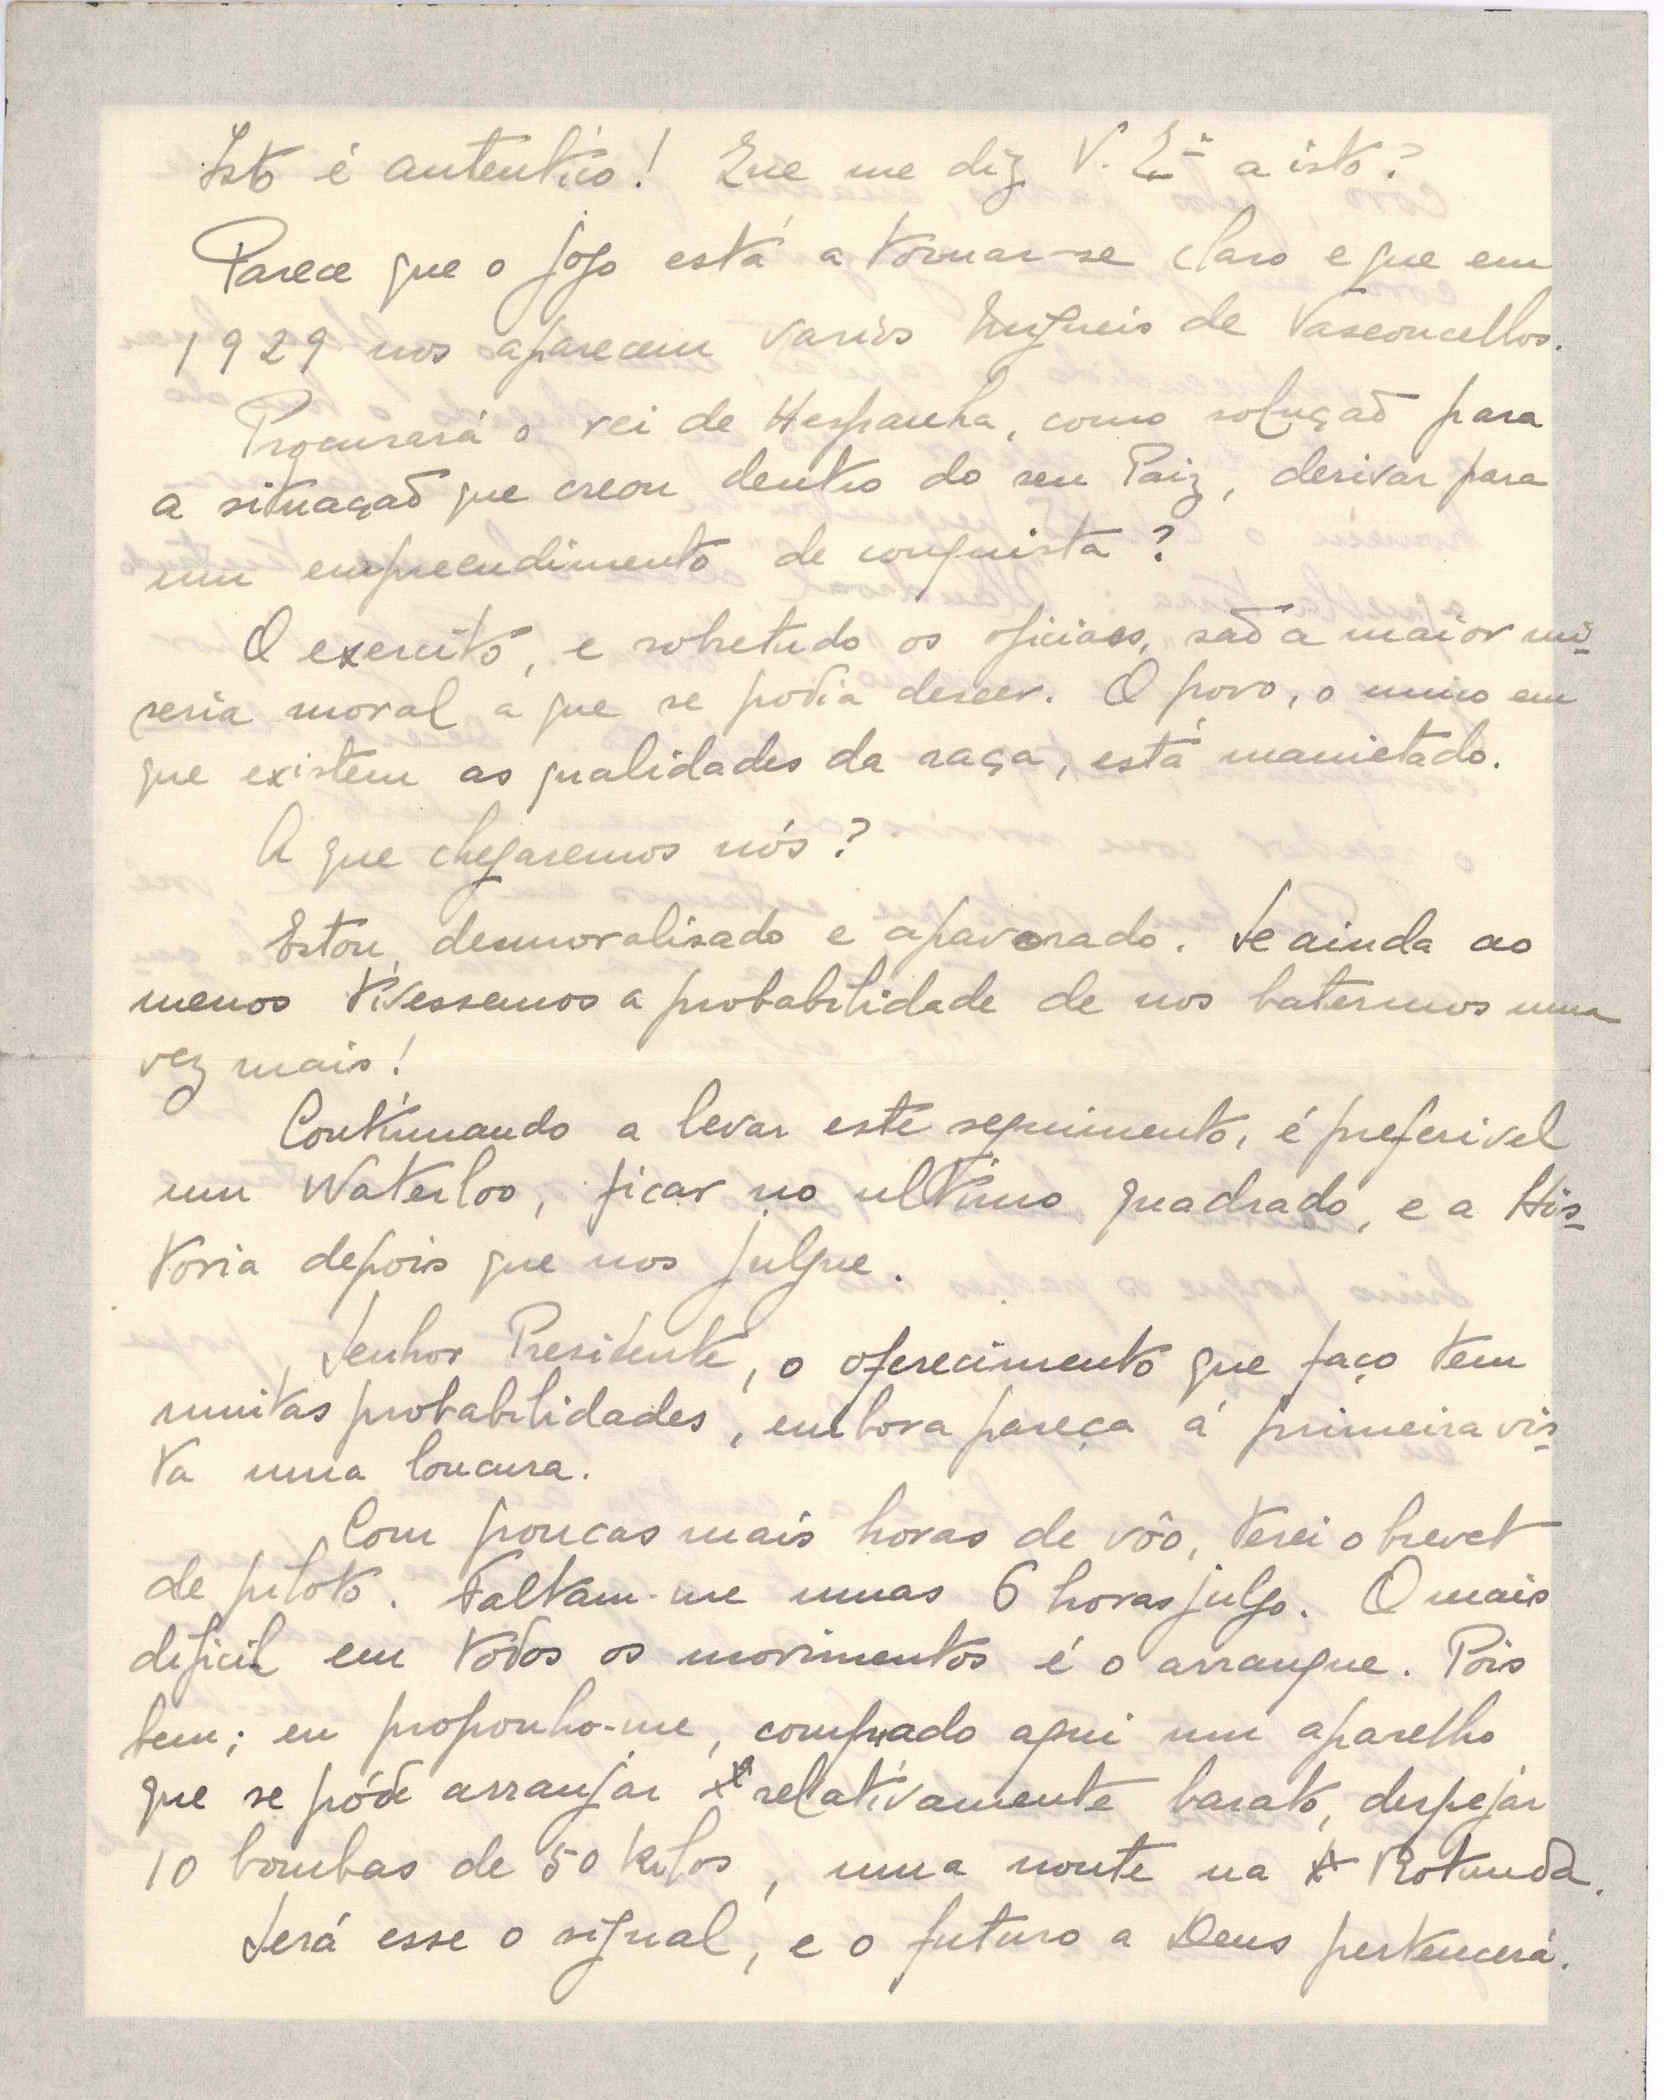 Isto é autentico! Que me diz V. Exª a isto?
Parece que o jogo está a tornar-se claro e que em
1929 nos aparecem varios Migueis de Vasconcellos.
Procurará o rei de Hespanha, como solução para
a situação que creou dentro do seu Paiz, derivar para
um empreendimento de conquista?
O exercito, e sobretudo os oficiaes, são a maior mi-
seria moral a que se podia descer. O povo, o unico em
que existem as qualidades da raça, está manietado.
A que chegaremos nós?
Estou desmoralisado e apavorado. Se ainda ao
menos tivessemos a probabilidade de nos batermos uma
vez mais!
Continuando a levar este seguimento, é preferivel
um Waterloo, ficar no ultimo quadrado, e a His-
toria depois que nos julgue.
Senhor Presidente, o oferecimento que faço tem
muitas probabilidades, embora pareça á primeira vis-
ta uma loucura.
Com poucas mais horas de vôo, terei o brevet
de piloto. Faltam-me umas 6 horas julgo. O mais
dificil em todos os movimentos é o arranque. Pois
bem; eu proponho-me, comprado aqui um aparelho
que se póde arranjar relativamente barato, despejar
10 bombas de 50 kilos, uma noute na Rotunda.
Será esse o signal, e o futuro a Deus pertencerá.